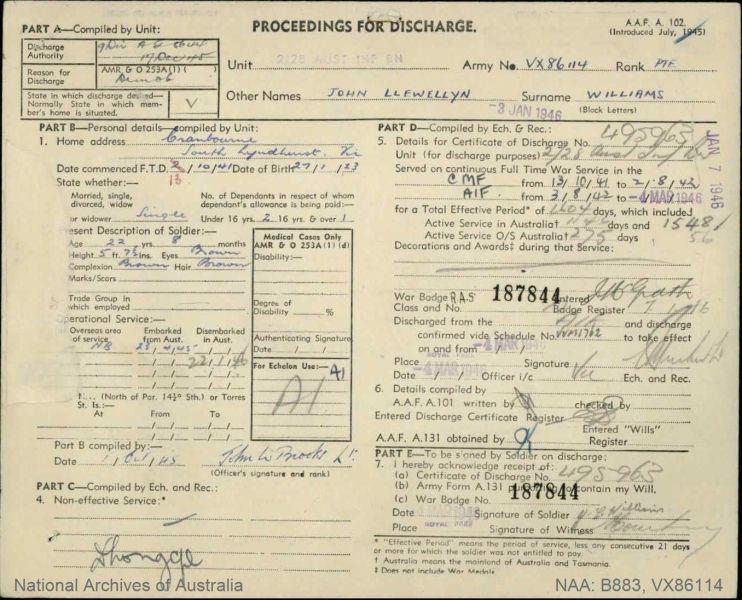 PROCEEDINGS FOR DISCHARGE.
A.A.F. A. 102.
(Introduced July, 1945)
PART A—Compiled by Unit:
Discharge Authority
Reason for Discharge
AMR & O 253A(1) ( )
Demob
State in which discharged—Normally State in which member's home is situated.
V
Unit 2/28 AUST INF BN
Army No. VX86114 Rank PTE
Other Names JOHN LLEWELLYN Surname WILLIAMS
(Block Letters)
-3 JAN 1946
JAN 7 1946
PART B—Personal details—compiled by Unit:
1. Home address Cranbourne
South Lyndhurst, Vic
Date commenced F.T.D. 2/10/41 Date of Birth 27/1/23
13
State whether:—
Married, single, divorced, widow or widower Single
No. of Dependants in respect of whom dependant's allowance is being paid:—
Under 16 yrs. 2 16 yrs. & over 1
Present Description of Soldier:—
Age 22 yrs. 8 months
Height 5 ft. 7½ ins. Eyes Brown
Complexion Brown Hair Brown
Marks/Scars
Trade Group in which employed
Operational Service:—
Overseas area of service
Embarked from Aust.
Disembarked in Aust.
Medical Cases Only
AMR & O 253A(1) (d)
Disability:—
Degree of Disability
Authenticating Signature
Date / /
For Echelon Use:— A1
A1
‡.... (North of Par. 14½° Sth.) or Torres St. Is.:—
At From To
Part B compiled by:—
Date
(Officer's signature and rank)
PART C—Compiled by Ech. and Rec.:
4. Non-effective Service:*—
PART D—Compiled by Ech. & Rec.:
5. Details for Certificate of Discharge No. 495963
Unit (for discharge purposes) 2/28 Aust Inf Bn
Served on continuous Full Time War Service in the
CMF from 13/10/41 to 2/8/42
AIF from 3/8/42 to -4 MAR 1946
for a Total Effective Period* of 1604 days, which included
Active Service in Australia† days and 1548
Active Service O/S Australia‡ 275 days 56
Decorations and Awards‡ during that Service:—
War Badge RAS 187844 Entered
Class and No. Badge Register
Discharged from the and discharge
confirmed vide Schedule No. to take effect
on and from -4 MAR 1946
Place Signature
ROYAL PARK
Date Officer i/c Vic Ech. and Rec.
6. Details compiled by
A.A.F. A.101 written by checked by
Entered Discharge Certificate Register
A.A.F. A.131 obtained by Entered "Wills" Register
PART E—To be signed by Soldier on discharge:
7. I hereby acknowledge receipt of:
(a) Certificate of Discharge No. 495963
(b) Army Form A.131 purporting to contain my Will.
(c) War Badge No. 187844
Date Signature of Soldier J. L. Williams
Place ROYAL PARK Signature of Witness
* "Effective Period" means the period of service, less any consecutive 21 days or more for which the soldier was not entitled to pay.
† Australia means the mainland of Australia and Tasmania.
‡ Does not include War Medals.
National Archives of Australia
NAA: B883, VX86114